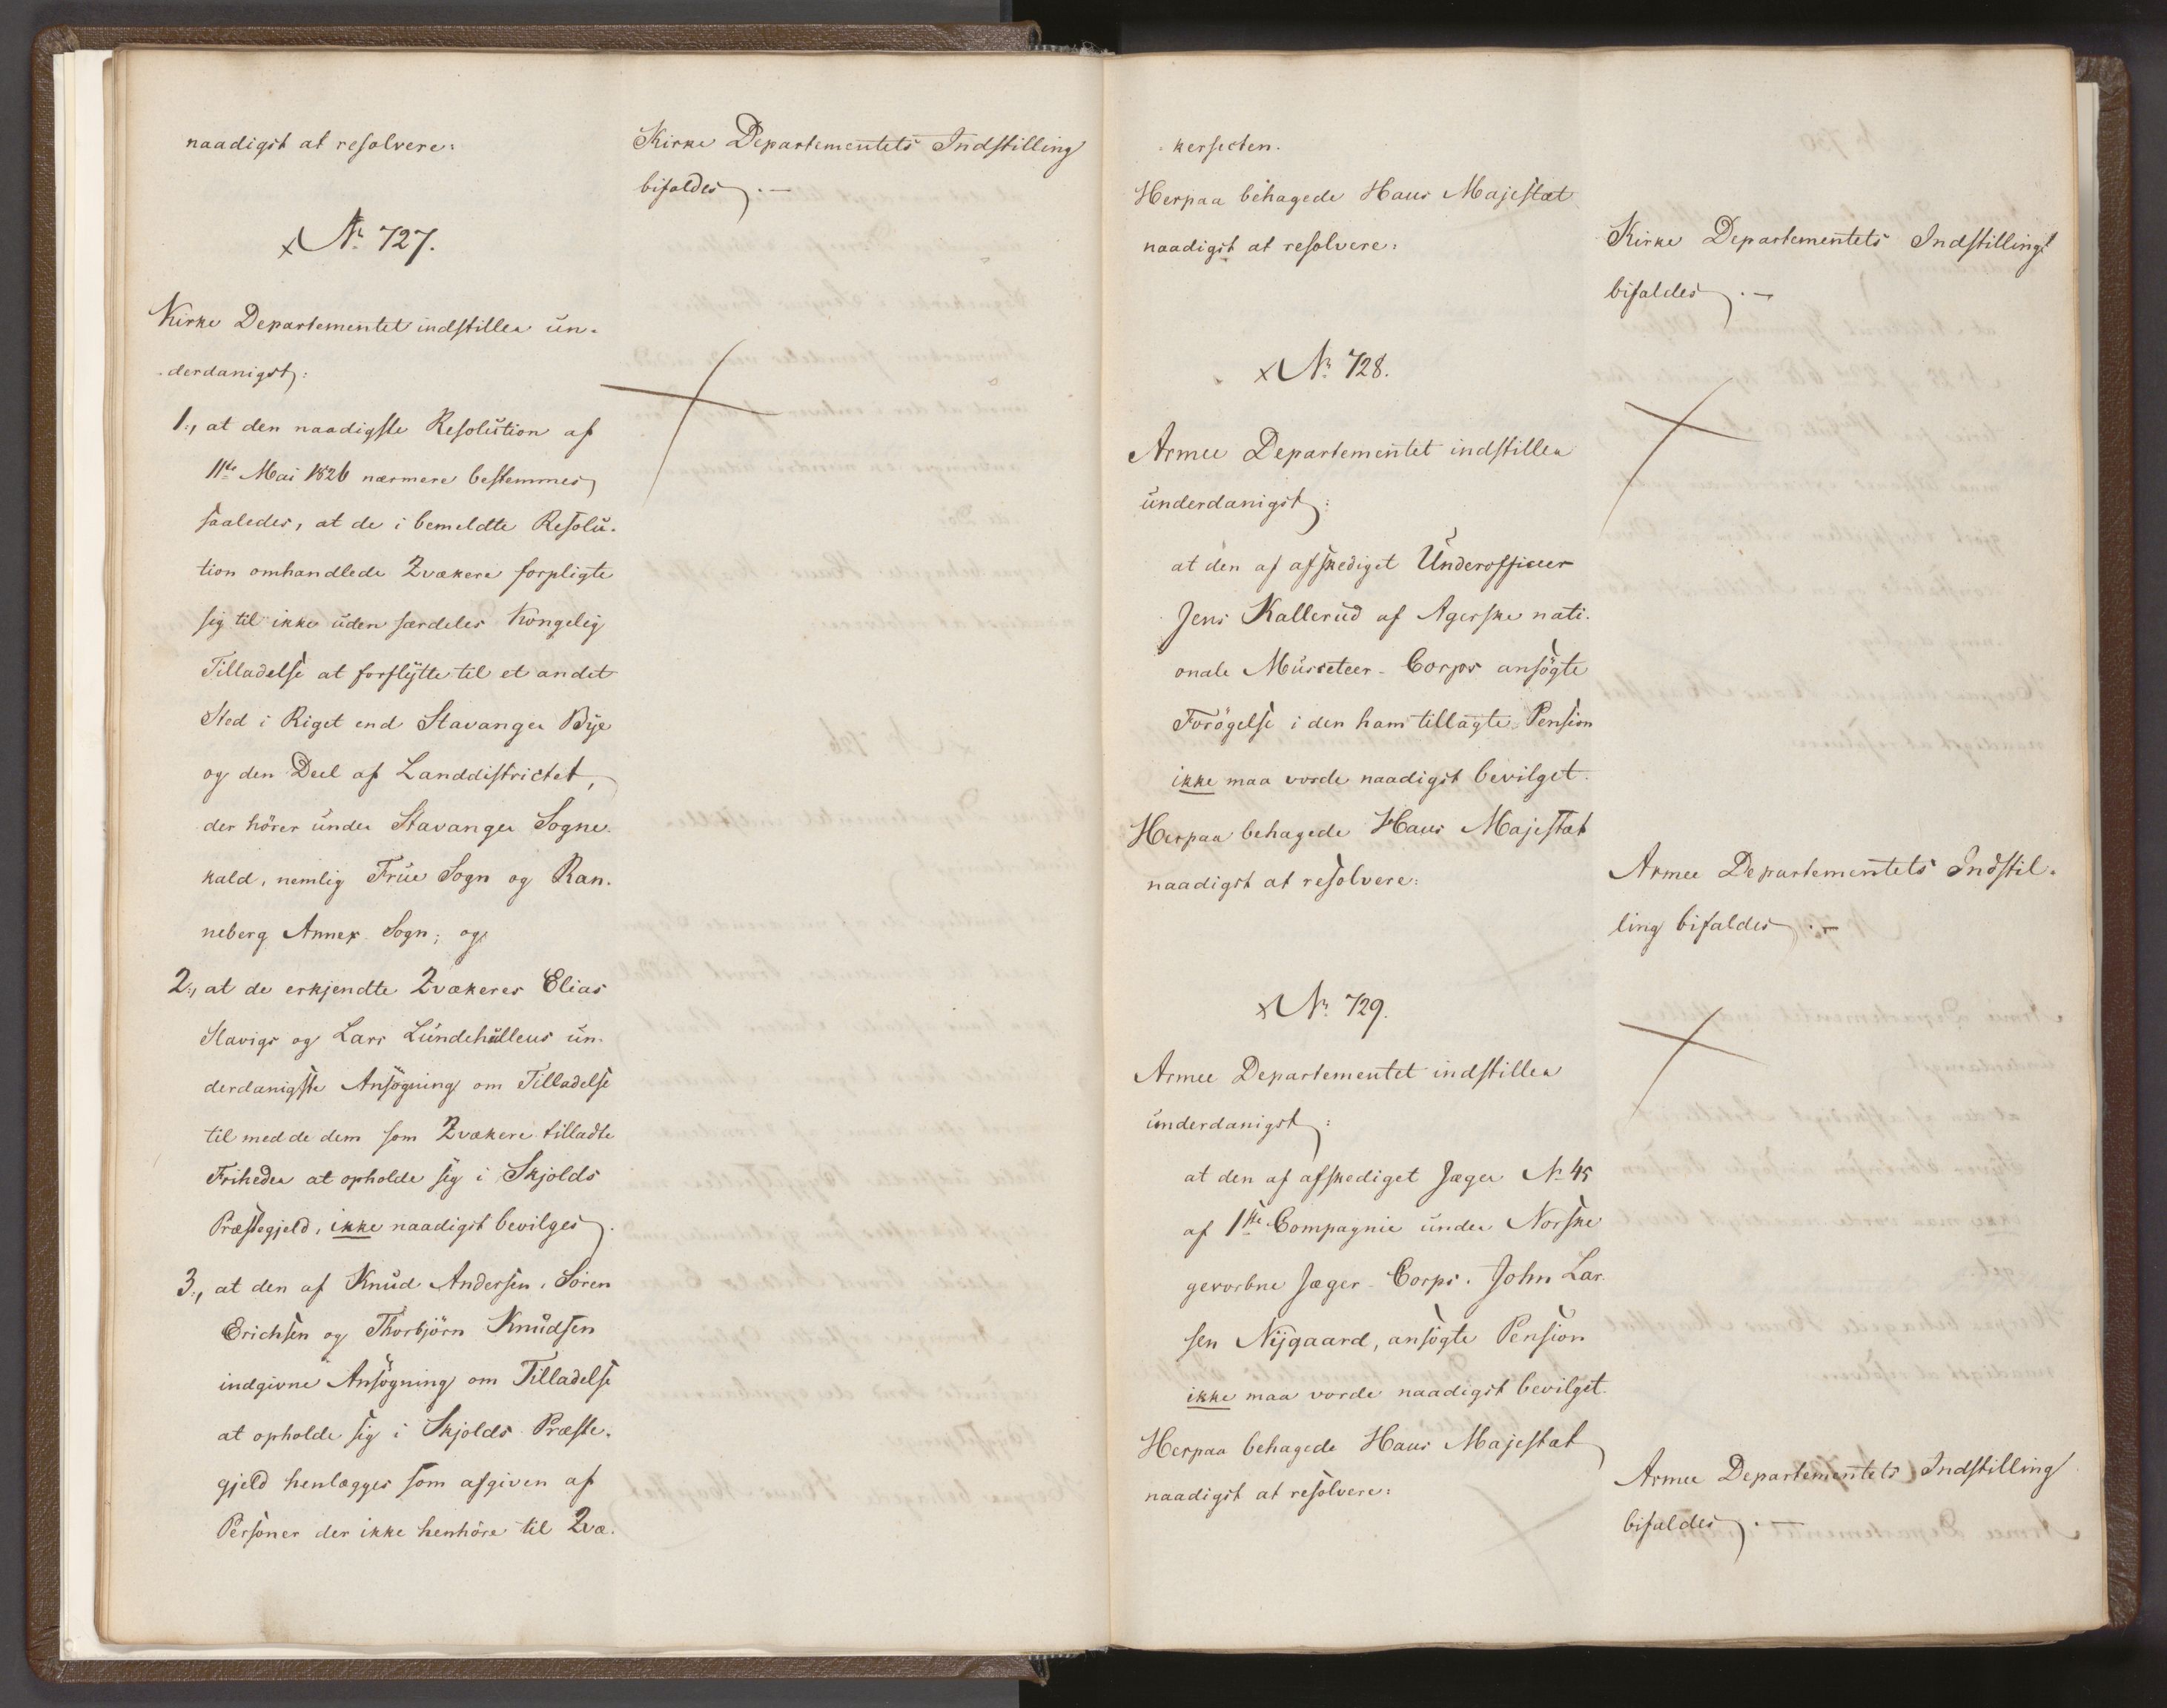 naadigst at resolvere:
Kirke Departementets Indstilling
bifaldes.—
x No 727.
Kirke Departementet indstiller un-
derdanigst:
1., at den naadigste Resolution af
11te Mai 1826 nærmere bestemmes
saaledes, at de i bemeldte Resolu-
tion omhandlede Qvækere forpligte
sig til ikke uden særdeles Kongelig
Tilladelse at forflytte til et andet
Sted i Riget end Stavanger Bye
og den Deel af Landdistrictet,
der hörer under Stavanger Sogne-
kald, nemlig Frue Sogn og Ran-
neberg Annex Sogn; og
2., at de erkjendte Qvækeres Elias
Stavigs og Lars Lundehülleus un-
derdanigste Ansögning om Tilladelse
til med de dem som Qvækere tilladte
Friheder at opholde sig i Skjolds
Præstegjeld, ikke naadigst bevilges.
3., at den af Knud Andersen, Sören
Erichsen og Thorbjörn Knudsen
indgivne Ansögning om Tilladelse
at opholde sig i Skjolds Præste-
gjeld henlægges som afgiven af
Personer der ikke henhöre til Qvæ-
kersecten.
Herpaa behagede Hans Majestæt
naadigst at resolvere:
Kirke Departementets Indstilling
bifaldes.—
x No 728.
Armee Departementet indstiller
underdanigst:
at den af afskediget Underofficeer
Jens Kallerud af Agerske nati-
onale Musceteer-Corps ansögte
Forögelse i den ham tillagte Pension
ikke maa vorde naadigst bevilget.
Herpaa behagede Hans Majestæt
naadigst at resolvere:
Armee Departementets Indstil-
ling bifaldes.—
x No 729.
Armee Departementet indstiller
underdanigst:
at den af afskediget Jæger No 45
af 1ste Compagnie under Norske
gevorbne Jæger-Corps, John Lar-
sen Nygaard, ansögte Pension
ikke maa vorde naadigst bevilget.
Herpaa behagede Hans Majestæt
naadigst at resolvere:
Armee Departementets Indstilling
bifaldes.—